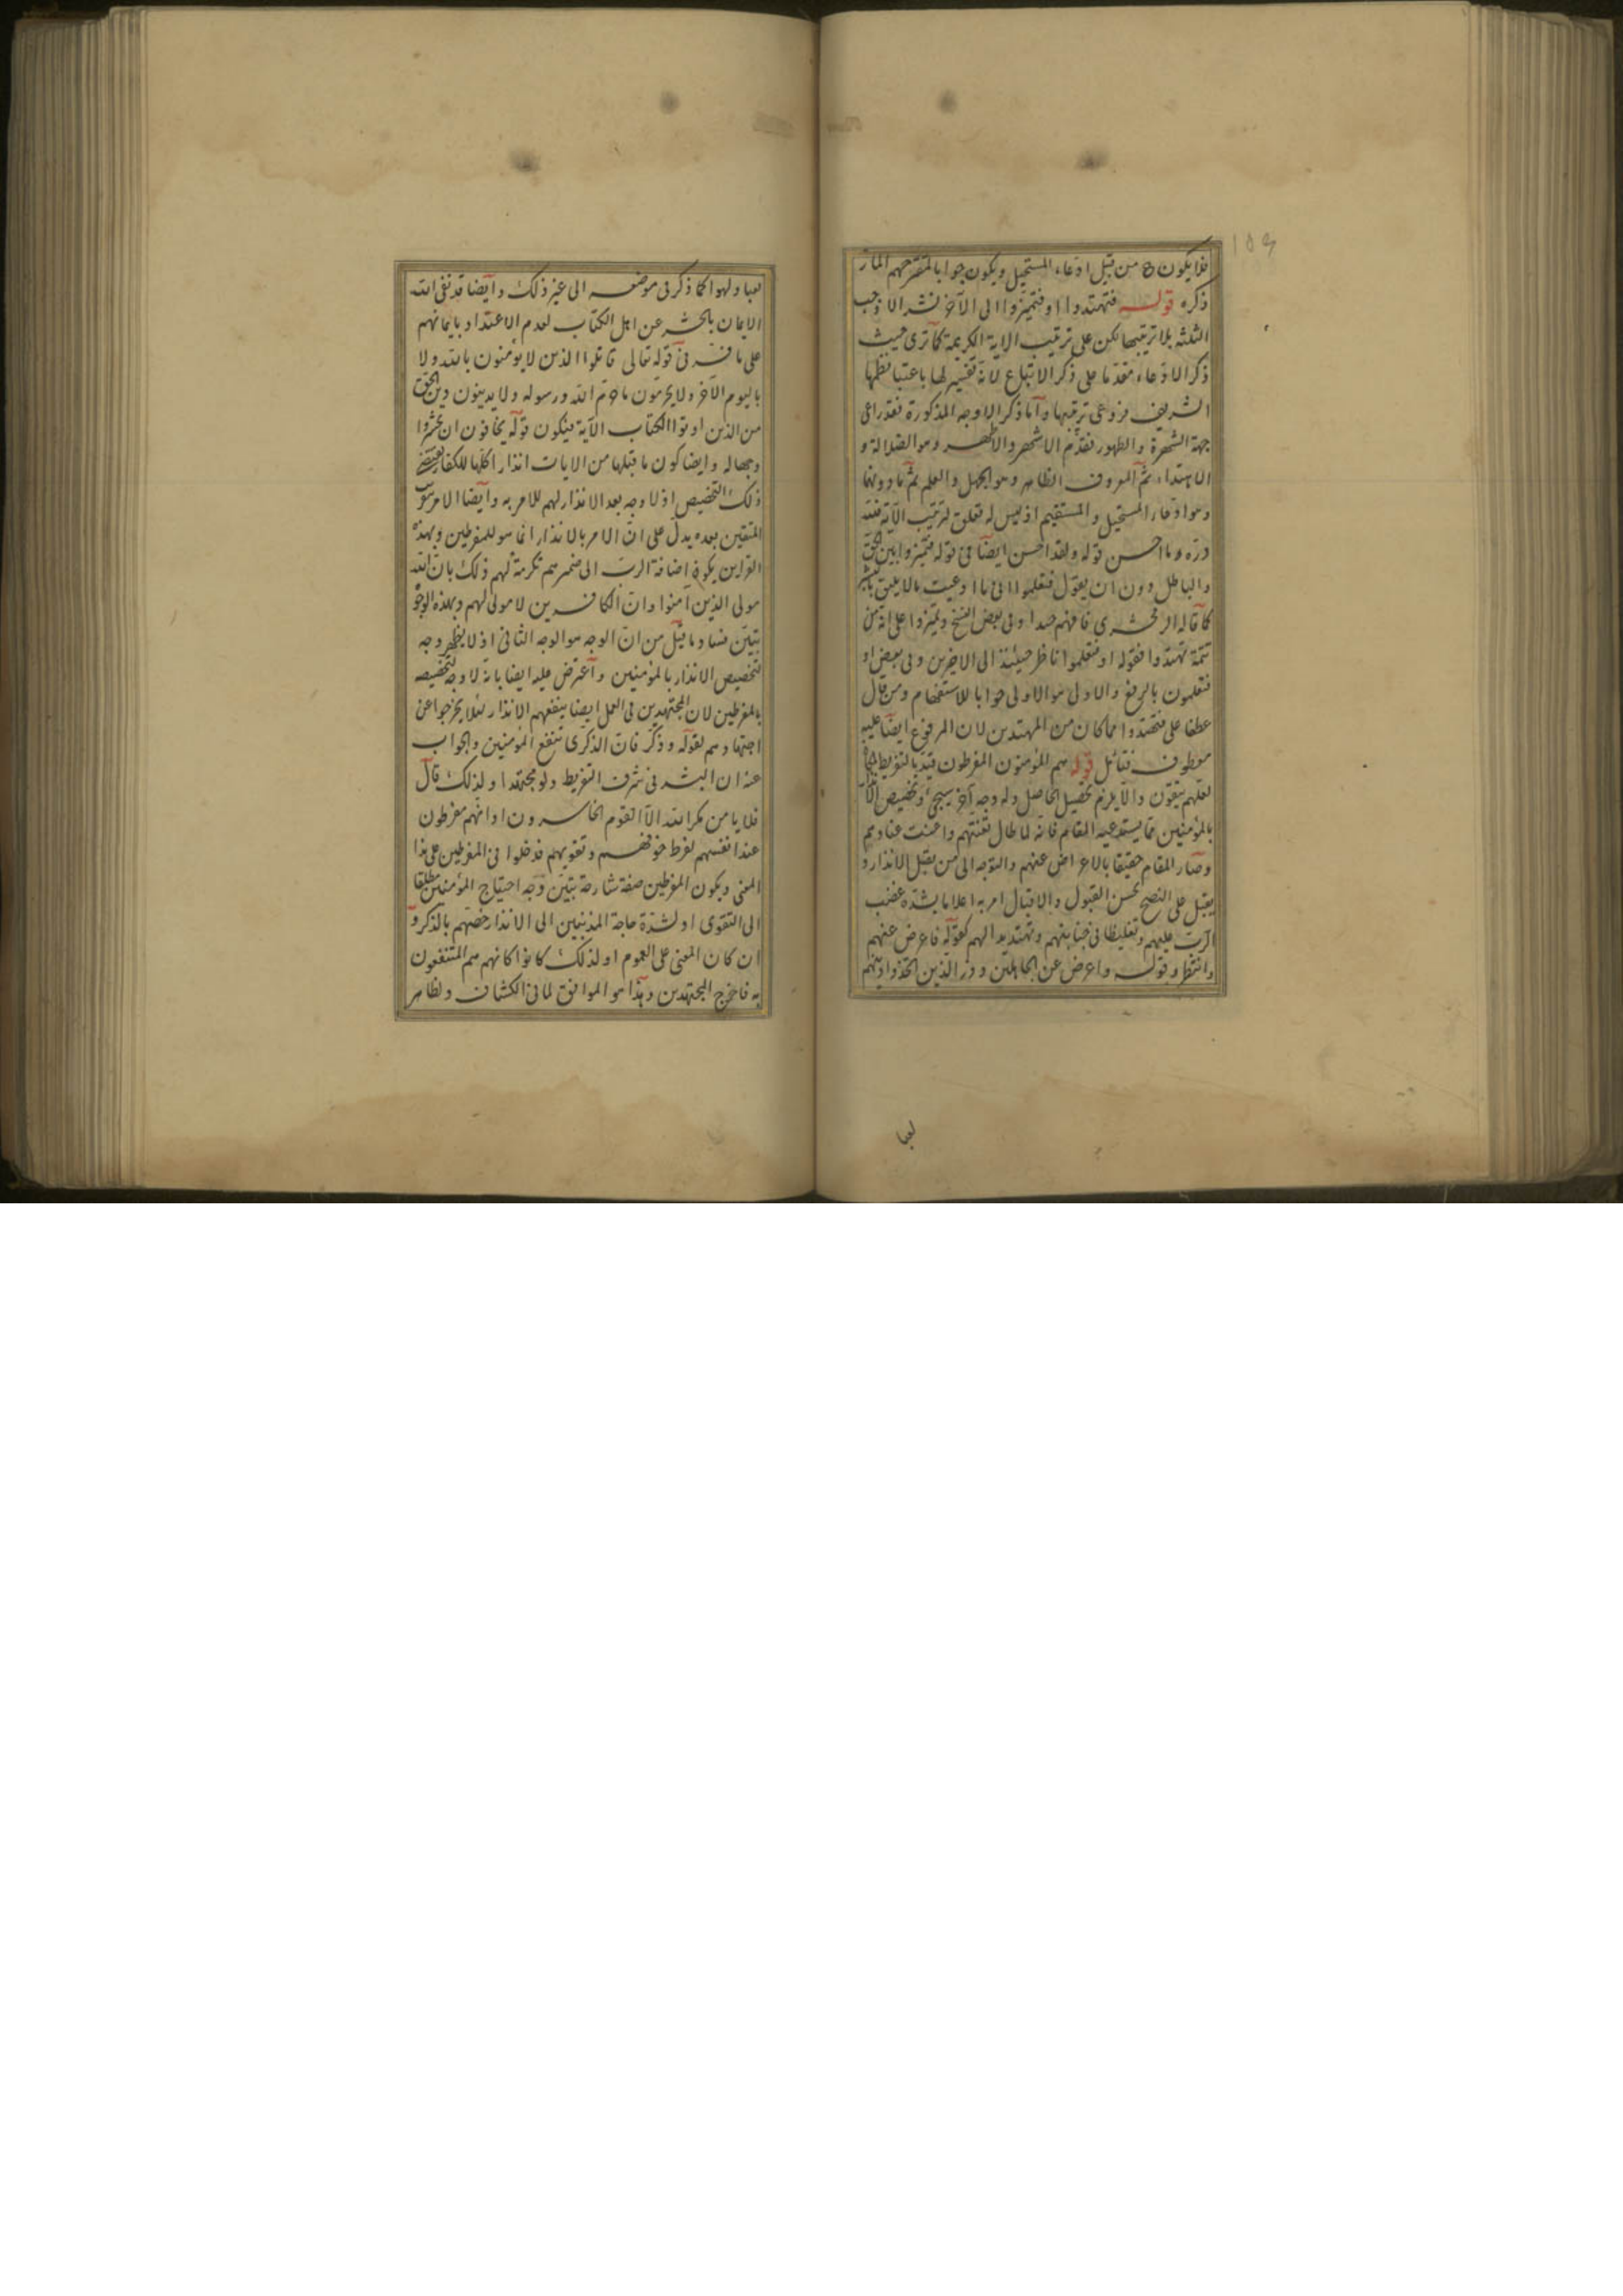 فلا يكون من قبيل ادعاء المستحيل ويكون جوابا لمقترحهم المار
ذكره قوله فتهتدوا او فتميزوا الى الآخر نشر الاوجه
الثلثة بلا ترتيبها لكن على ترتيب الاية الكريمة كما ترى حيث
ذكر الادعاء مقدما على ذكر الاتباع لانه تفسير لها باعتبار نظمها
الشريف فروعى ترتيبها واما ذكر الاوجه المذكورة فقد راعى
جهة الشهرة والظهور فقدم الاشهر والاظهر وهو الضلالة و
الاهتداء ثم المعروف الظاهر وهو الجهل والعلم ثم ما دونهما
وهو ادعاء المستحيل والمستقيم اذ ليس له تعلق لترتيب الآية فلله
دره وما احسن قوله ولقد احسن ايضا فى قوله فتميزوا بين الحق
والباطل دون ان يقول فتعلموا انى ما ادعيت ما لا يليق بالبشر
كما قاله الزمخشرى فافهم جدا وفى بعض النسخ وتميزوا على انه من
تتمة تهتدوا فقوله او فتعلموا ناظر حينئذ الى الاخيرين وفى بعض او
فتعلمون بالرفع والاولى هو الاولى جوابا للاستفهام ومن قال
عطفا على فتهتدوا فما كان من المهتدين لان المرفوع ايضا عليه
معطوف فتأمل قوله هم المؤمنون المفرطون قيد بالتفريط
لعلهم يتقون والا يلزم تحصيل الحاصل وله وجه آخر سيجئ وتخصيص الانذار
بالمؤمنين مما يستدعيه المقام فانه لما طال تعنتهم وعنادهم
وصار المقام حقيقا بالاعراض عنهم والتوجه الى من يقبل الانذار و
يقبل على النصح بحسن القبول والاقبال امر به اعلاما بشدة غضب
الرب عليهم وتغليظا فى جنايتهم وتهديدا لهم كقوله فاعرض عنهم
وانتظر وقوله واعرض عن الجاهلين وذر الذين اتخذوا دينهم
لعبا
لعبا ولهوا كما ذكر فى موضعه الى غير ذلك وايضا قد نفى الله
الايمان بالحشر عن اهل الكتاب لعدم الاعتداد بايمانهم
على ما فسر فى قوله تعالى قاتلوا الذين لا يؤمنون بالله ولا
باليوم الآخر ولا يحرمون ما حرم الله ورسوله ولا يدينون دين الحق
من الذين اوتوا الكتاب الآية فيكون قوله يخافون ان يحشروا
وجها له وايضا كون ما قبلها من الايات انذارا كلها للكفار يقتضى
ذلك التخصيص اذ لا وجه بعد الانذار لهم للامر به وايضا الامر
المتقين بعده يدل على ان الامر بالانذار انما هو للمفرطين وبهذه
القراين يكون اضافة الرب الى ضميرهم تكرمة لهم ذلك بان الله
مولى الذين آمنوا وان الكافرين لا مولى لهم وبهذه الوجوه
تبين فساد ما قيل من ان الوجه هو الوجه الثانى اذ لا يظهر وجه
لتخصيص الانذار بالمؤمنين واعترض عليه ايضا بانه لا وجه لتخصيصه
بالمفرطين لان المجتهدين فى العمل ايضا ينفعهم الانذار لئلا يخرجوا عن
اجتهادهم لقوله وذكر فان الذكرى تنفع المؤمنين والجواب
عنه ان البشر فى شرف التفريط ولو مجتهدا ولذلك قال
فلا يأمن مكر الله الا القوم الخاسرون او انهم مفرطون
عند انفسهم لفرط خوفهم وتقويهم فدخلوا فى المفرطين على هذا
المعنى ويكون المفرطين صفة شارحة تبين وجه احتياج المؤمنين مطلقا
الى التقوى او لشدة حاجة المذنبين الى الانذار خصهم بالذكر و
ان كان المعنى على العموم او لذلك كانوا كانهم هم المنتفعون
به فاخرج المجتهدين وهذا هو الموافق لما فى الكشاف ولظاهر